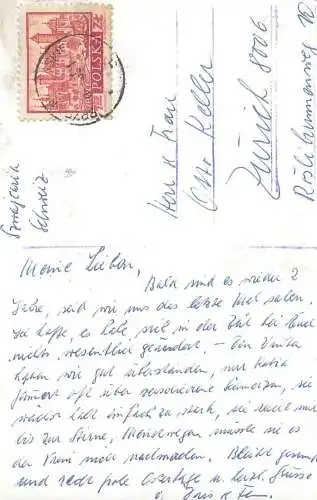 POLSKA
Szwajcaria
Schweiz
Herr & Frau
Otto Keller
Zürich 8006
Röslibrunnenweg 10
Meine Lieben,
Bald sind es wieder 2
Jahre, seid wir uns das letzte Mal sahen.
Ich hoffe, es hat sich in der Zeit bei Euch
nichts wesentlich geändert. – Den Winter
haben wir gut überstanden, nur Katia
jammert oft über verschiedene, sie
wächst halt einfach zu stark, sie reicht mir
bis zur Stirne, Meinetwegen müsste sie es
der Vreni nicht nachmachen. Bleibt gesund
und recht frohe Ostertage u. herzl. Grüsse